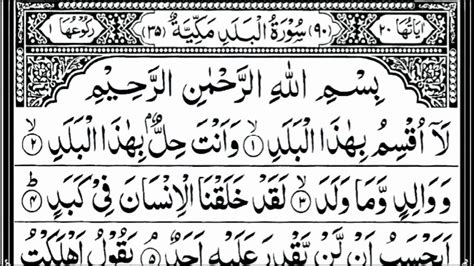 اٰیَاتُهَا ۲۰ (۹۰) سُوْرَةُ الْبَلَدِ مَكِّیَّةٌ (۳۵) رُكُوْعُهَا ۱
بِسْمِ اللّٰهِ الرَّحْمٰنِ الرَّحِیْمِ
لَاۤ اُقْسِمُ بِهٰذَا الْبَلَدِ ۙ۱ وَاَنْتَ حِلٌّۢ بِهٰذَا الْبَلَدِ ۙ۲
وَوَالِدٍ وَّمَا وَلَدَ ۙ۳ لَقَدْ خَلَقْنَا الْاِنْسَانَ فِیْ كَبَدٍ ؕ۴
اَیَحْسَبُ اَنْ لَّنْ یَّقْدِرَ عَلَیْهِ اَحَدٌ ۘ۵ یَقُوْلُ اَهْلَكْتُ